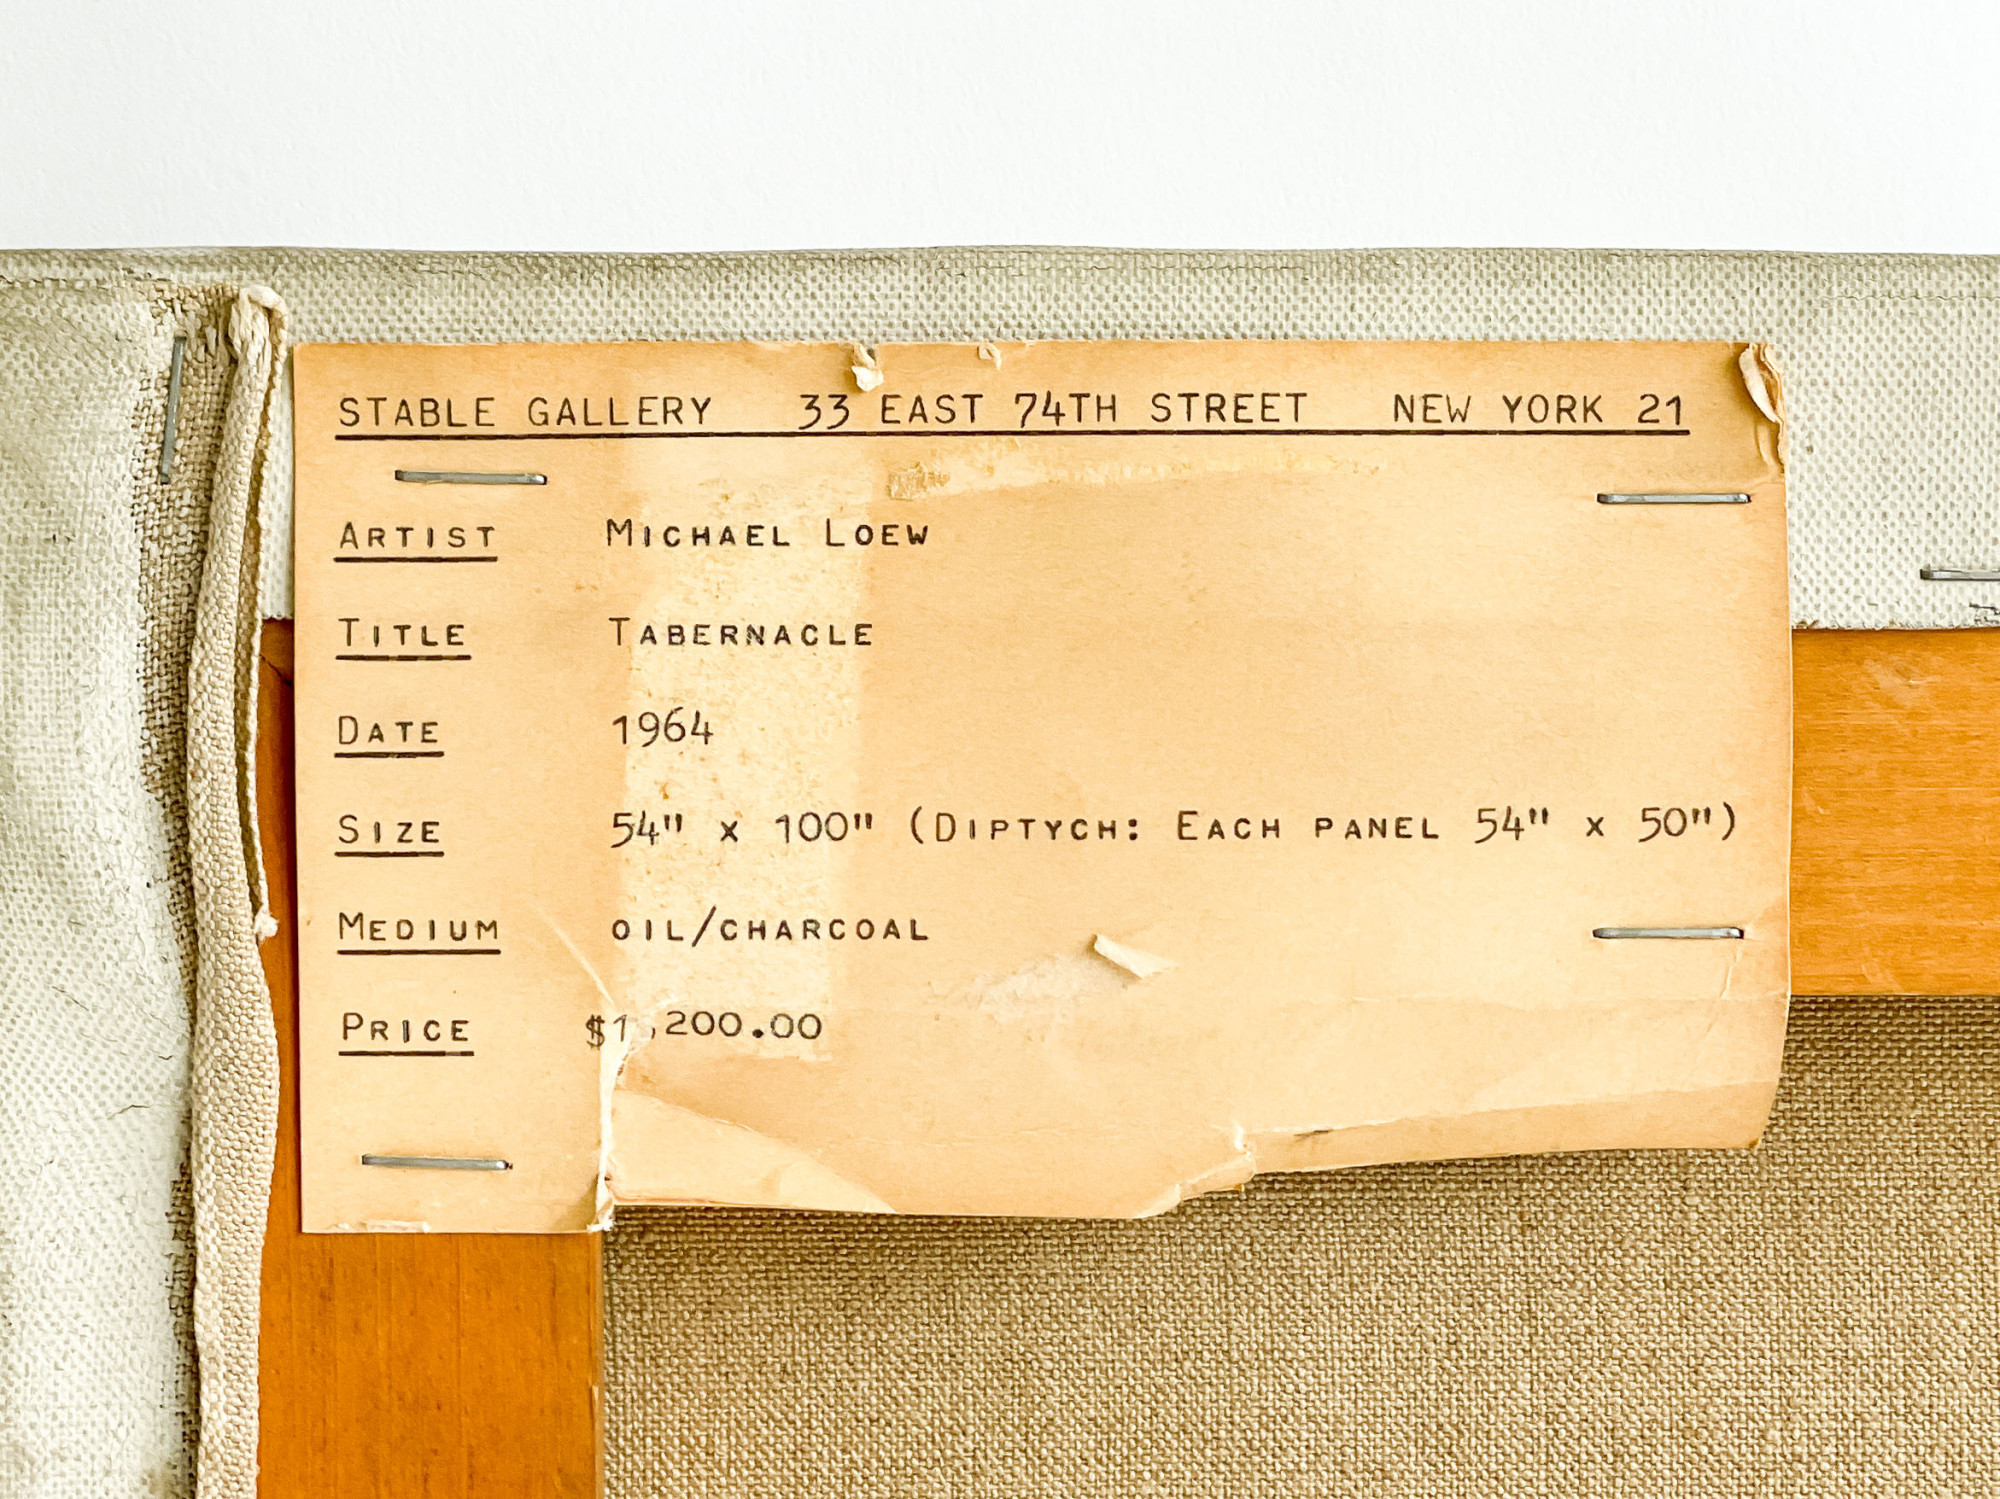 STABLE GALLERY 33 EAST 74TH STREET NEW YORK 21
ARTIST MICHAEL LOEW
TITLE TABERNACLE
DATE 1964
SIZE 54" x 100" (DIPTYCH: EACH PANEL 54" x 50")
MEDIUM OIL/CHARCOAL
PRICE $1,200.00